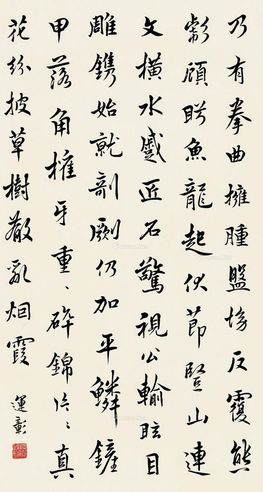 乃有拳曲擁腫盤坳反覆熊
彪顧盼魚龍起伏節豎山連
文橫水蹙匠石驚視公輸眩目
雕鐫始就剞劂仍加平鱗鏟
甲落角摧牙重々碎錦片々真
花紛披草樹散乱烟霞
運彰